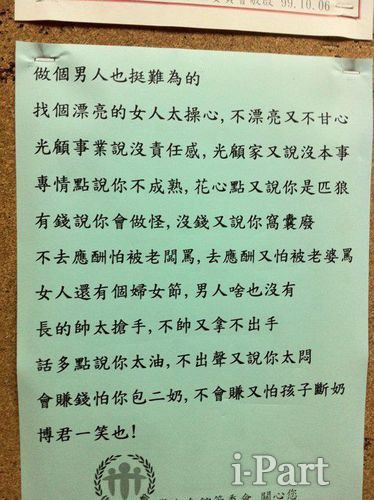 99.10.06
做個男人也挺難為的
找個漂亮的女人太操心,不漂亮又不甘心
光顧事業說沒責任感,光顧家又說沒本事
專情點說你不成熟,花心點又說你是匹狼
有錢說你會做怪,沒錢又說你窩囊廢
不去應酬怕被老闆罵,去應酬又怕被老婆罵
女人還有個婦女節,男人啥也沒有
長的帥太搶手,不帥又拿不出手
話多點說你太油,不出聲又說你太悶
會賺錢怕你包二奶,不會賺又怕孩子斷奶
博君一笑也!
委員會 關心您
i-Part